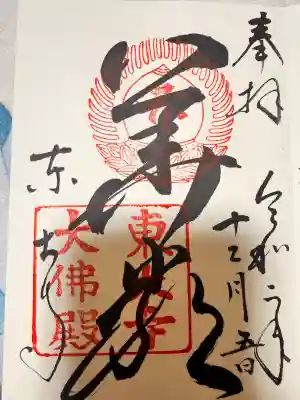 奉拝
令和二年
十二月五日
華厳
東大寺
東大寺
大佛殿